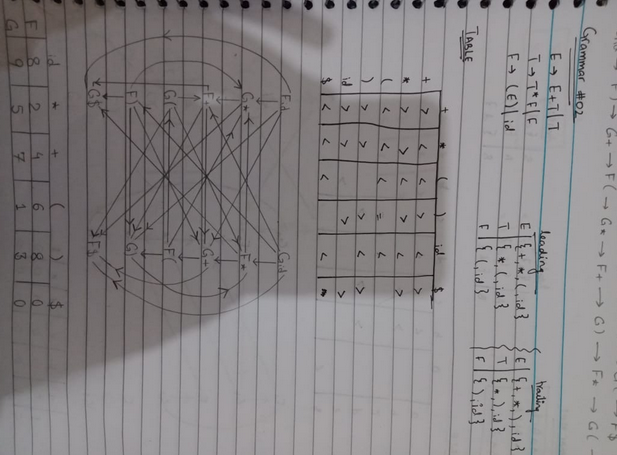 F) → G+ → F( → G* → F+ → G) → F* → G( →
Grammar #02
E → E+T | T
T → T*F | F
F → (E) | id
leading
E {+,*,(,id}
T {*,(,id}
F {(,id}
trailing
E {+,*,),id}
T {*,),id}
F {),id}
TABLE
+ * ( ) id $
+ > < < > < >
* > > < > < >
( < < < = <
) > > > >
id > > > >
$ < < < <
Fid Gid
G* F*
G+
G( F(
F) G)
G$ F$
id * + ( ) $
F 8 2 4 6 8 0
G 9 5 7 1 3 0